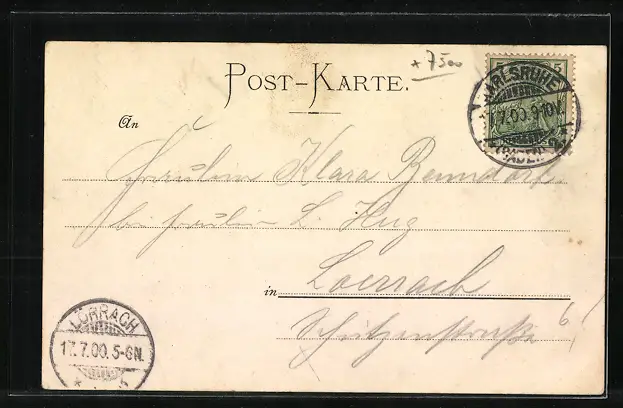 + 7500
POST-KARTE.
5
KARLSRUHE
17.7.00.9-10V.
(BADEN) 2
An
Fräulein Klara Benndorf
bei Fräulein L. Hug
in Loerrach
Schützenstraße 6
LÖRRACH
17.7.00.5-6N.